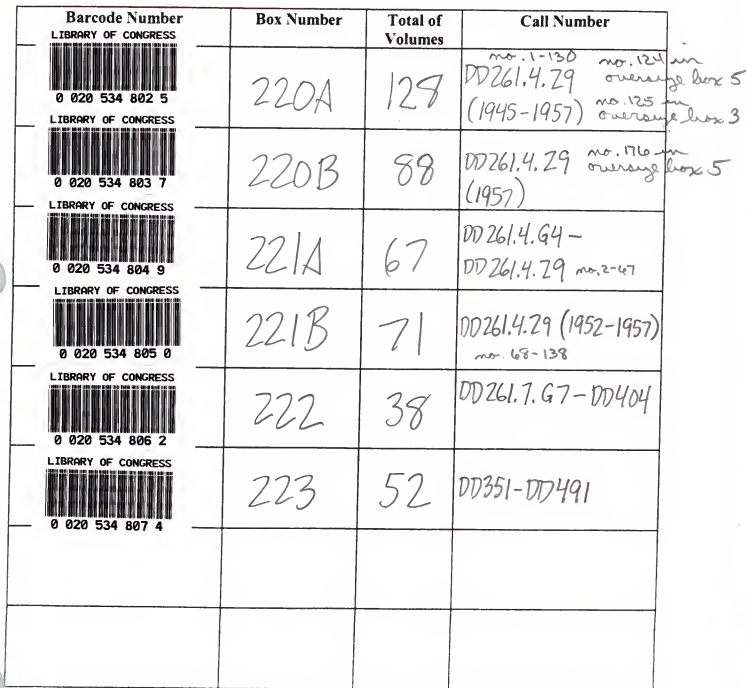 Barcode Number Box Number Total of Volumes Call Number
LIBRARY OF CONGRESS
0 020 534 802 5
220A
128
no. 1-130
DD261.4.Z9
(1945-1957)
no. 124 in
oversize box 5
no. 125 in
oversize box 3
LIBRARY OF CONGRESS
0 020 534 803 7
220B
88
DD261.4.Z9
(1957)
no. 176 in
oversize box 5
LIBRARY OF CONGRESS
0 020 534 804 9
221A
67
DD261.4.G4 –
DD261.4.Z9 no. 2-67
LIBRARY OF CONGRESS
0 020 534 805 0
221B
71
DD261.4.Z9 (1952-1957)
no. 68-138
LIBRARY OF CONGRESS
0 020 534 806 2
222
38
DD261.7.G7 – DD404
LIBRARY OF CONGRESS
0 020 534 807 4
223
52
DD351 – DD491